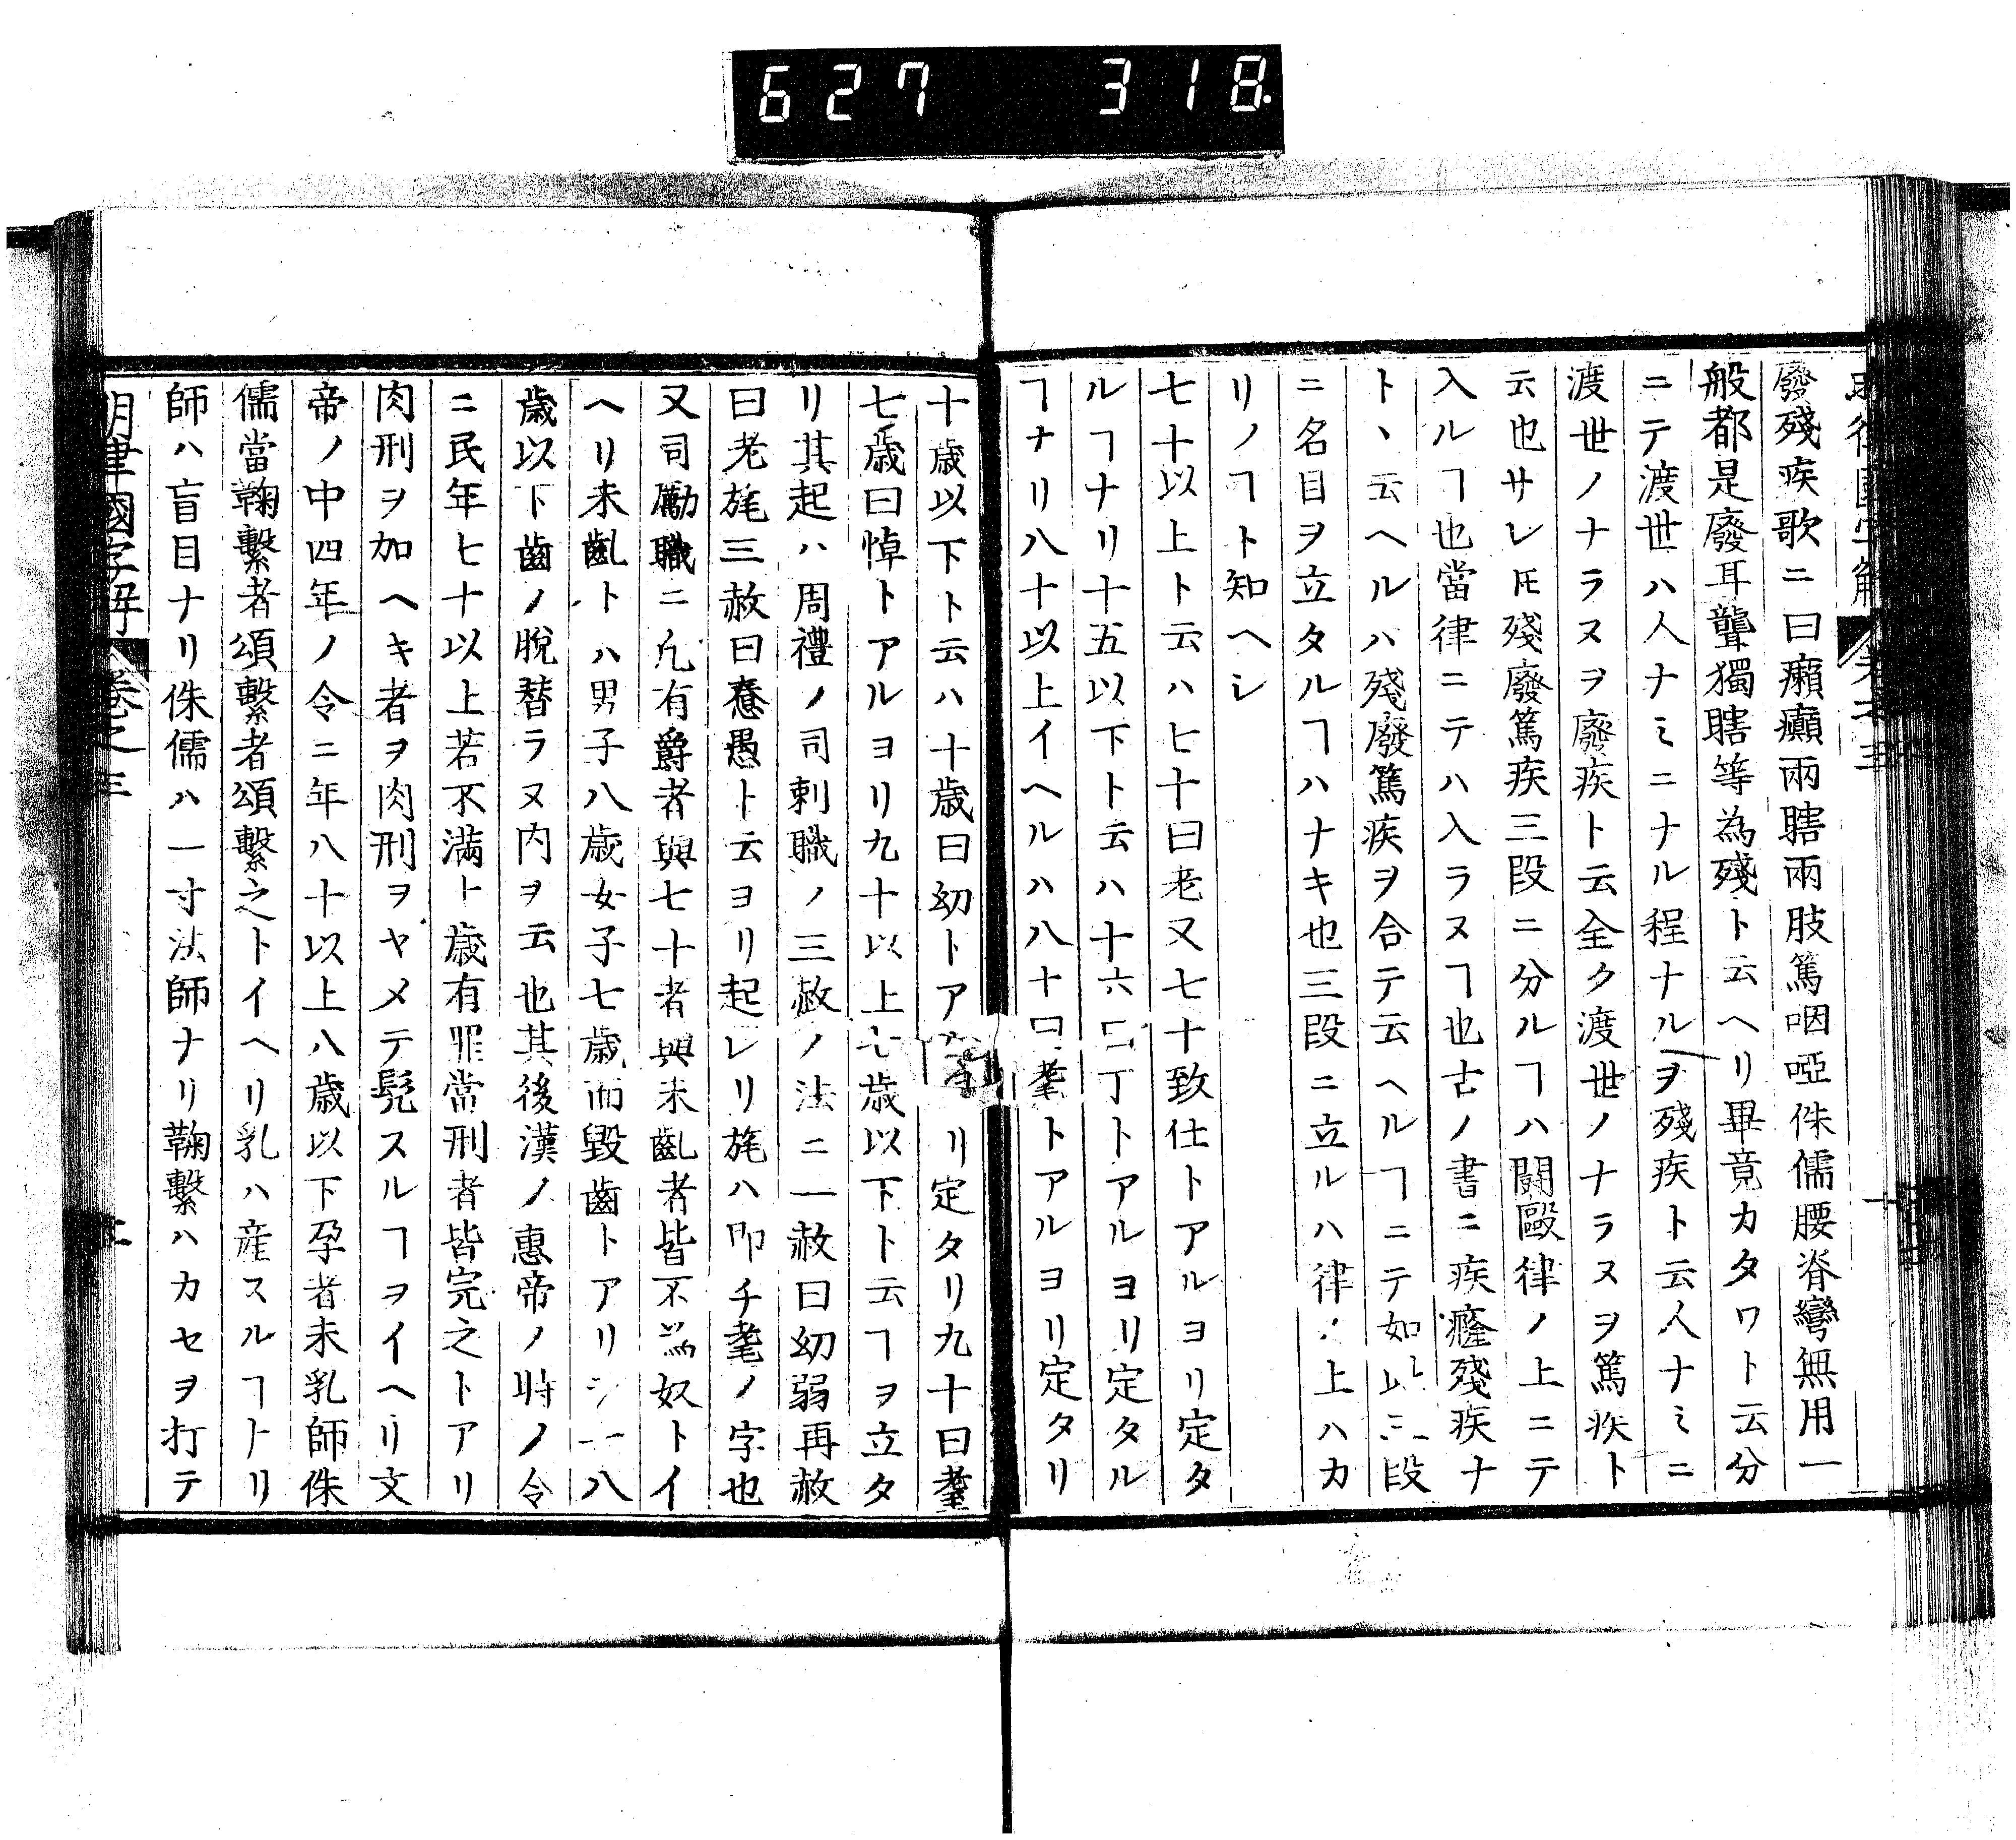 627 318
廢殘疾歌ニ曰癩癲兩瞎兩肢篤咽啞侏儒腰脊彎無用一
般都是廢耳聾獨瞎等為殘ト云ヘリ畢竟カタワト云分
ニテ渡世ハ人ナミニナル程ナルヲ殘疾ト云人ナミニ
渡世ノナラヌヲ廢疾ト云全ク渡世ノナラヌヲ篤疾ト
云也サレ𪜈殘廢篤疾三段ニ分ルヿハ鬪毆律ノ上ニテ
入ルヿ也當律ニテハ入ラヌヿ也古ノ書ニ疾癃殘疾ナ
ト丶云ヘルハ殘廢篤疾ヲ合テ云ヘルヿニテ如此三段
ニ名目ヲ立タルヿハナキ也三段ニ立ルハ律ノ上ハカ
リノヿト知ヘシ
七十以上ト云ハ七十曰老又七十致仕トアルヨリ定タ
ルヿナリ十五以下ト云ハ十六曰丁トアルヨリ定タル
ヿナリ八十以上イヘルハ八十曰耋トアルヨリ定タリ
十歳以下ト云ハ十歳曰幼トア リ定タリ九十曰耄
七歳曰悼トアルヨリ九十以上七歳以下ト云ヿヲ立タ
リ其起ハ周禮ノ司剌職ノ三赦ノ法ニ一赦曰幼弱再赦
曰老旄三赦曰憃愚ト云ヨリ起レリ旄ハ即チ耄ノ字也
又司勵職ニ凡有爵者與七十者與未齔者皆不為奴トイ
ヘリ未齔トハ男子八歳女子七歳而毀齒トアリシ 八
歳以下齒ノ脫替ラヌ内ヲ云也其後漢ノ惠帝ノ時ノ令
ニ民年七十以上若不滿十歳有罪當刑者皆完之トアリ
肉刑ヲ加ヘキ者ヲ肉刑ヲヤメテ髠スルヿヲイヘリ文
帝ノ中四年ノ令ニ年八十以上八歳以下孕者未乳師侏
儒當鞠繫者頌繫者頌繫之トイヘリ乳ハ産スルヿトリ
師ハ盲目ナリ侏儒ハ一寸法師ナリ鞠繫ハカセヲ打テ
明律國字解 卷之三